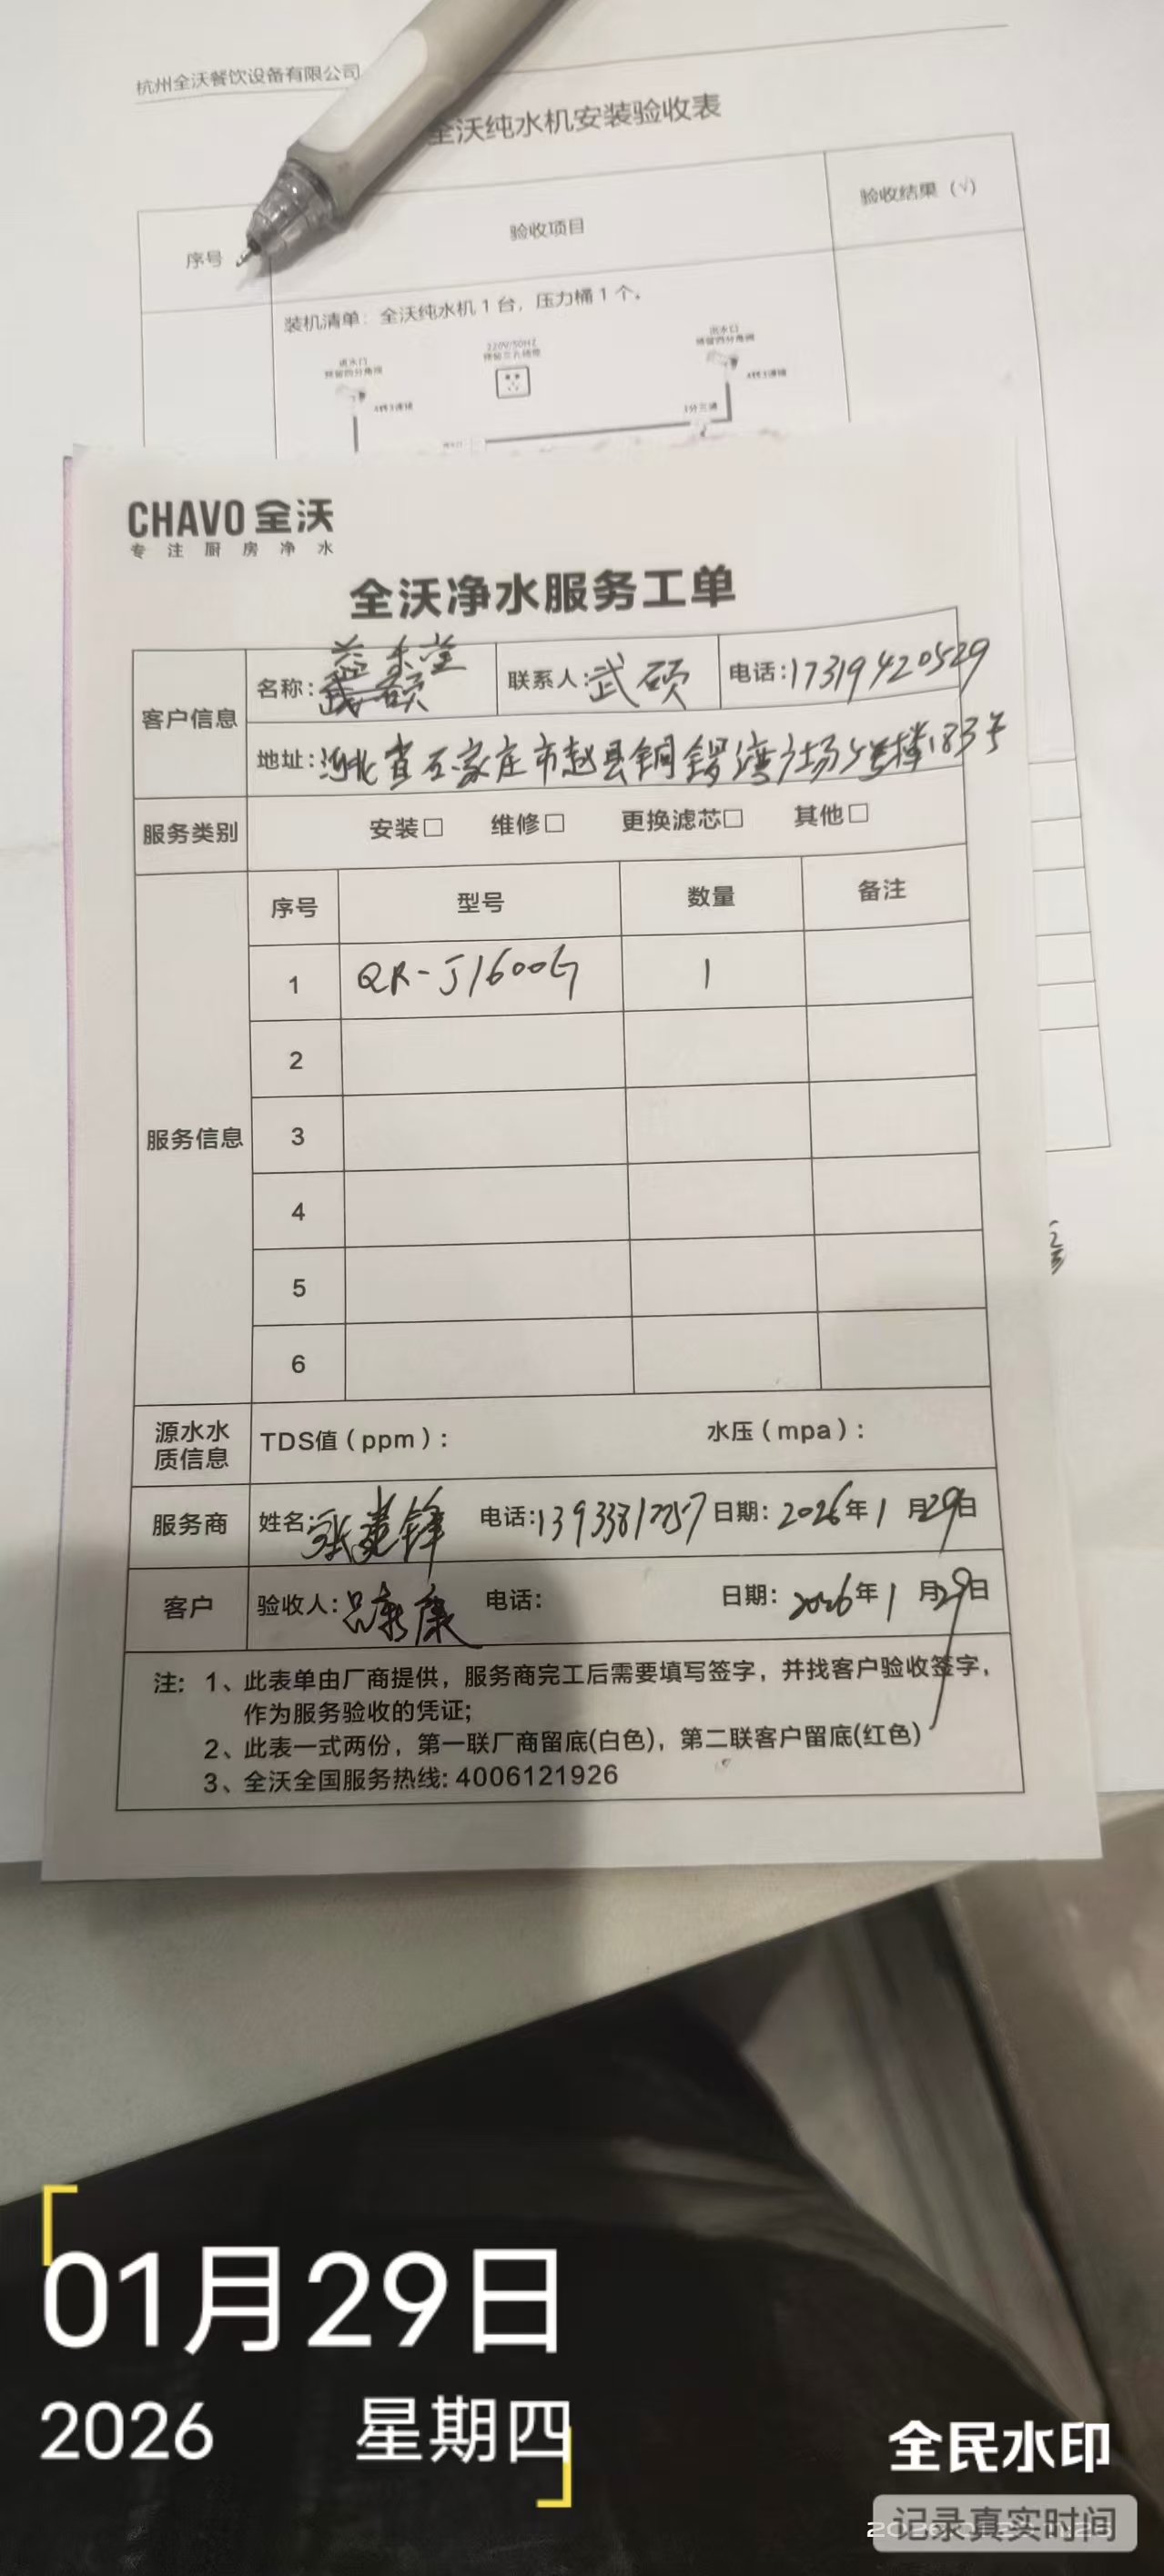 杭州全沃餐饮设备有限公司
全沃纯水机安装验收表
序号 验收项目 验收结果（√）
装机清单：全沃纯水机1台，压力桶1个。
进水口 220V/50HZ 出水口
CHAVO 全沃
专注厨房净水
全沃净水服务工单
客户信息 名称: 堂 联系人:武硕 电话:17319420529
地址:河北省石家庄市赵县铜锣湾广场 号楼183号
服务类别 安装□ 维修□ 更换滤芯□ 其他□
服务信息 序号 型号 数量 备注
1 QR-J1600G 1
2
3
4
5
6
源水水质信息 TDS值（ppm）: 水压（mpa）:
服务商 姓名:张建锋 电话: 日期: 2026年1月29日
客户 验收人: 康 电话: 日期: 2026年1月29日
注: 1、此表单由厂商提供，服务商完工后需要填写签字，并找客户验收签字，
作为服务验收的凭证;
2、此表一式两份，第一联厂商留底(白色)，第二联客户留底(红色)
3、全沃全国服务热线: 4006121926
01月29日
2026 星期四
全民水印
记录真实时间